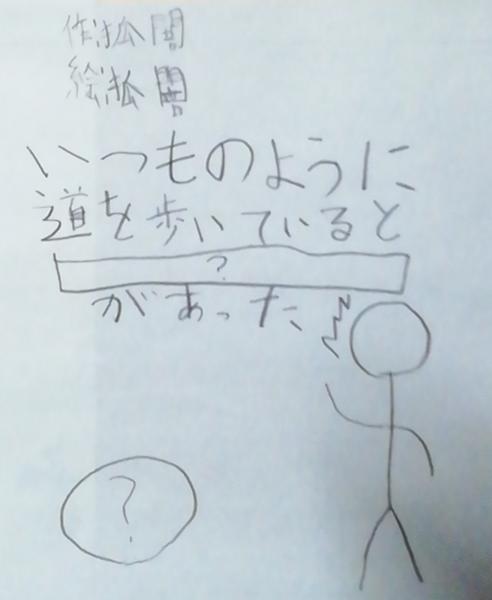 作 狐闇
絵 狐闇
いつものように
道を歩いていると
?
があった
?